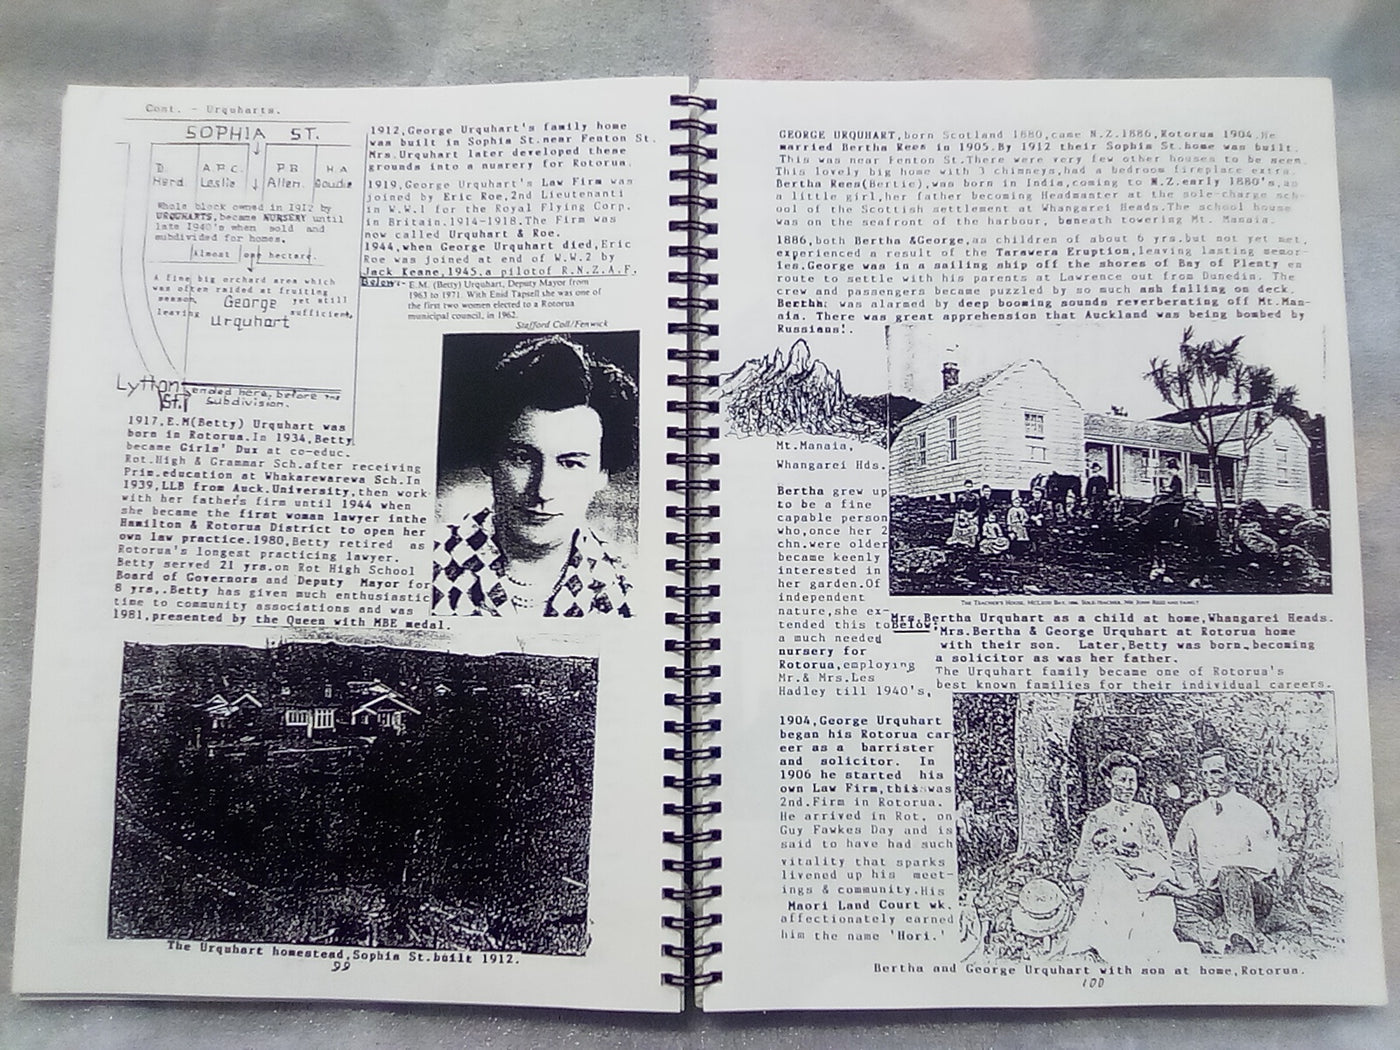 Cont. - Urquharts.
SOPHIA ST.
D. Herd.
A.P.C. Leslie
P B Allen.
H A Goudie
Whole block owned in 1912 by
URQUHARTS, became NURSERY until
late 1940's when sold and
subdivided for homes.
Almost one hectare.
A fine big orchard area which
was often raided at fruiting
season, yet still
leaving sufficient.
George
Urquhart
Lytton St.
ended here, before the
Subdivision.
1912,George Urquhart's family home
was built in Sophia St.near Fenton St.
Mrs.Urquhart later developed these
grounds into a nusrery for Rotorua.
1919,George Urquhart's Law Firm was
joined by Eric Roe,2nd Lieutenanti
in W.W.1 for the Royal Flying Corp.
in Britain.1914-1918.The Firm was
now called Urquhart & Roe.
1944,when George Urquhart died,Eric
Roe was joined at end of W.W.2 by
Jack Keane,1945.a pilotof R.N.Z.A.F.
Below:- E.M. (Betty) Urquhart, Deputy Mayor from
1963 to 1971. With Enid Tapsell she was one of
the first two women elected to a Rotorua
municipal council, in 1962.
Stafford Coll/Fenwick
1917.E.M(Betty) Urquhart was
born in Rotorua.In 1934,Betty
became Girls' Dux at co-educ.
Rot.High & Grammar Sch.after receiving
Prim.education at Whakarewarewa Sch.In
1939,LLB from Auck.University,then work
with her father's firm until 1944 when
she became the first woman lawyer inthe
Hamilton & Rotorua District to open her
own law practice.1980,Betty retired as
Rotorua's longest practicing lawyer.
Betty served 21 yrs.on Rot High School
Board of Governors and Deputy Mayor for
8 yrs,.Betty has given much enthusiastic
time to community associations and was
1981,presented by the Queen with MBE medal.
The Urquhart homestead,Sophia St.built 1912.
99
GEORGE URQUHART,born Scotland 1880,came N.Z.1886,Rotorua 1904.He
married Bertha Rees in 1905.By 1912 their Sophia St.home was built.
This was near Fenton St.There were very few other houses to be seen.
This lovely big home with 3 chimneys,had a bedroom fireplace extra.
Bertha Rees(Bertie),was born in India,coming to N.Z.early 1880's,as
a little girl,her father becoming Headmaster at the sole-charge sch-
ool of the Scottish settlement at Whangarei Heads.The school house
was on the seafront of the harbour, beneath towering Mt. Manaia.
1886,both Bertha &George,as children of about 6 yrs.but not yet met,
experienced a result of the Tarawera Eruption,leaving lasting memor-
ies.George was in a sailing ship off the shores of Bay of Plenty en
route to settle with his parents at Lawrence out from Dunedin. The
crew and passengers became puzzled by so much ash falling on deck.
Bertha: was alarmed by deep booming sounds reverberating off Mt.Man-
aia. There was great apprehension that Auckland was being bombed by
Russians!.
Mt.Manaia,
Whangarei Hds.
THE TEACHER'S HOUSE, MCLEOD BAY,
Bertha grew up
to be a fine
capable person
who,once her 2
chn.were older
became keenly
interested in
her garden.Of
independent
nature,she ex-
tended this to
a much needed
nursery for
Rotorua,employing
Mr.& Mrs.Les
Hadley till 1940's.
Mrs.Bertha Urquhart as a child at home,Whangarei Heads.
Below: Mrs.Bertha & George Urquhart at Rotorua home
with their son. Later,Betty was born,becoming
a solicitor as was her father.
The Urquhart family became one of Rotorua's
best known families for their individual careers.
1904,George Urquhart
began his Rotorua car
eer as a barrister
and solicitor. In
1906 he started his
own Law Firm,this was
2nd.Firm in Rotorua.
He arrived in Rot. on
Guy Fawkes Day and is
said to have had such
vitality that sparks
livened up his meet-
ings & community.His
Maori Land Court wk.
affectionately earned
him the name 'Hori.'
Bertha and George Urquhart with son at home,Rotorua.
100